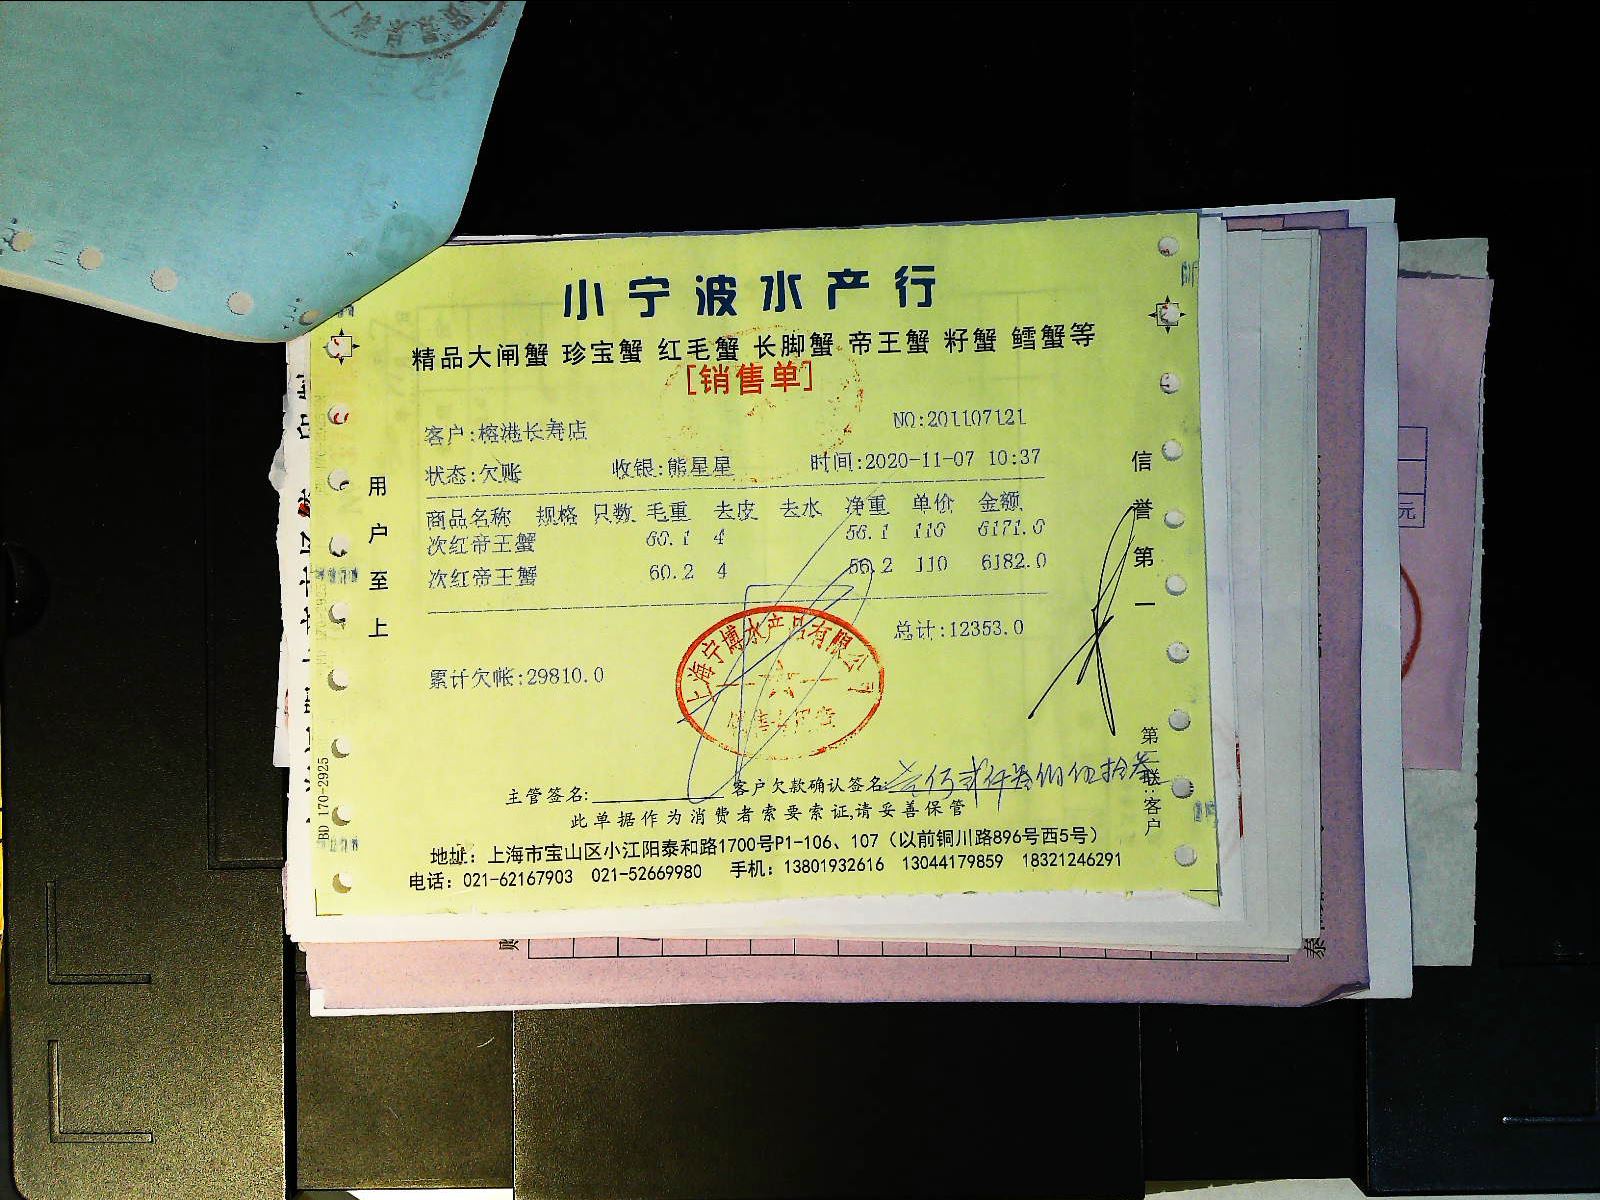 小宁波水产行
精品大闸蟹 珍宝蟹 红毛蟹 长脚蟹 帝王蟹 籽蟹 鳕蟹等
[销售单]
客户:榕港长寿店
NO:201107121
状态:欠账 收银:熊星星 时间:2020-11-07 10:37
商品名称 规格 只数 毛重 去皮 去水 净重 单价 金额
次红帝王蟹 60.1 4 56.1 110 6171.0
次红帝王蟹 60.2 4 56.2 110 6182.0
总计:12353.0
累计欠帐:29810.0
上海宁博水产品有限公司
销售专用章
主管签名: 客户欠款确认签名:
此单据作为消费者索要索证,请妥善保管
地址：上海市宝山区小江阳泰和路1700号P1-106、107（以前铜川路896号西5号）
电话：021-62167903 021-52669980 手机：13801932616 13044179859 18321246291
用户至上
信誉第一
第二联:客户
BD 170-2925
元